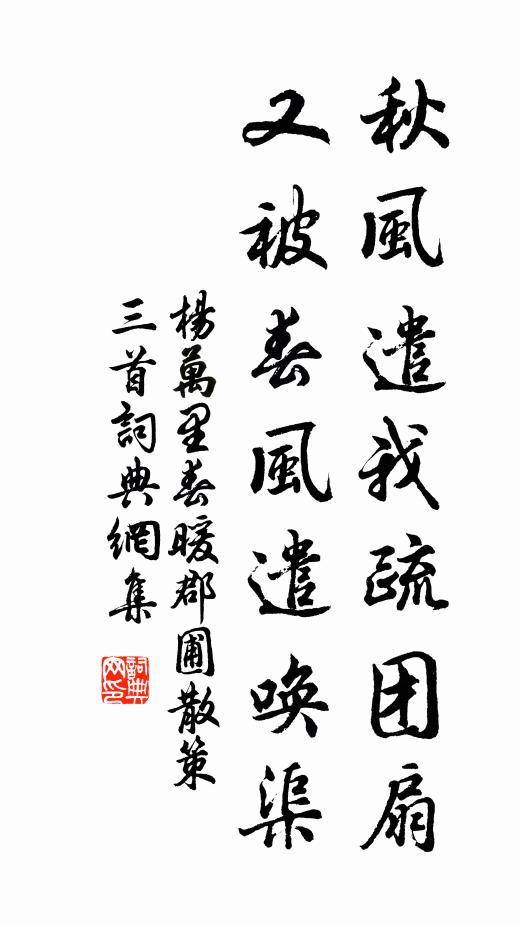 秋風遣我疏团扇
又被春風遣喚渠
楊萬里春暖郡圃散策
三首詞典網集
詞典
网印